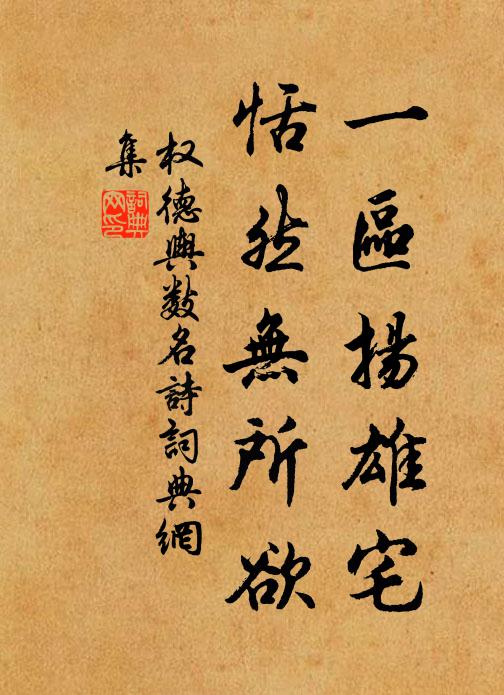 一區揚雄宅
恬然無所欲
权德輿數名詩詞典網
集
詞典網印